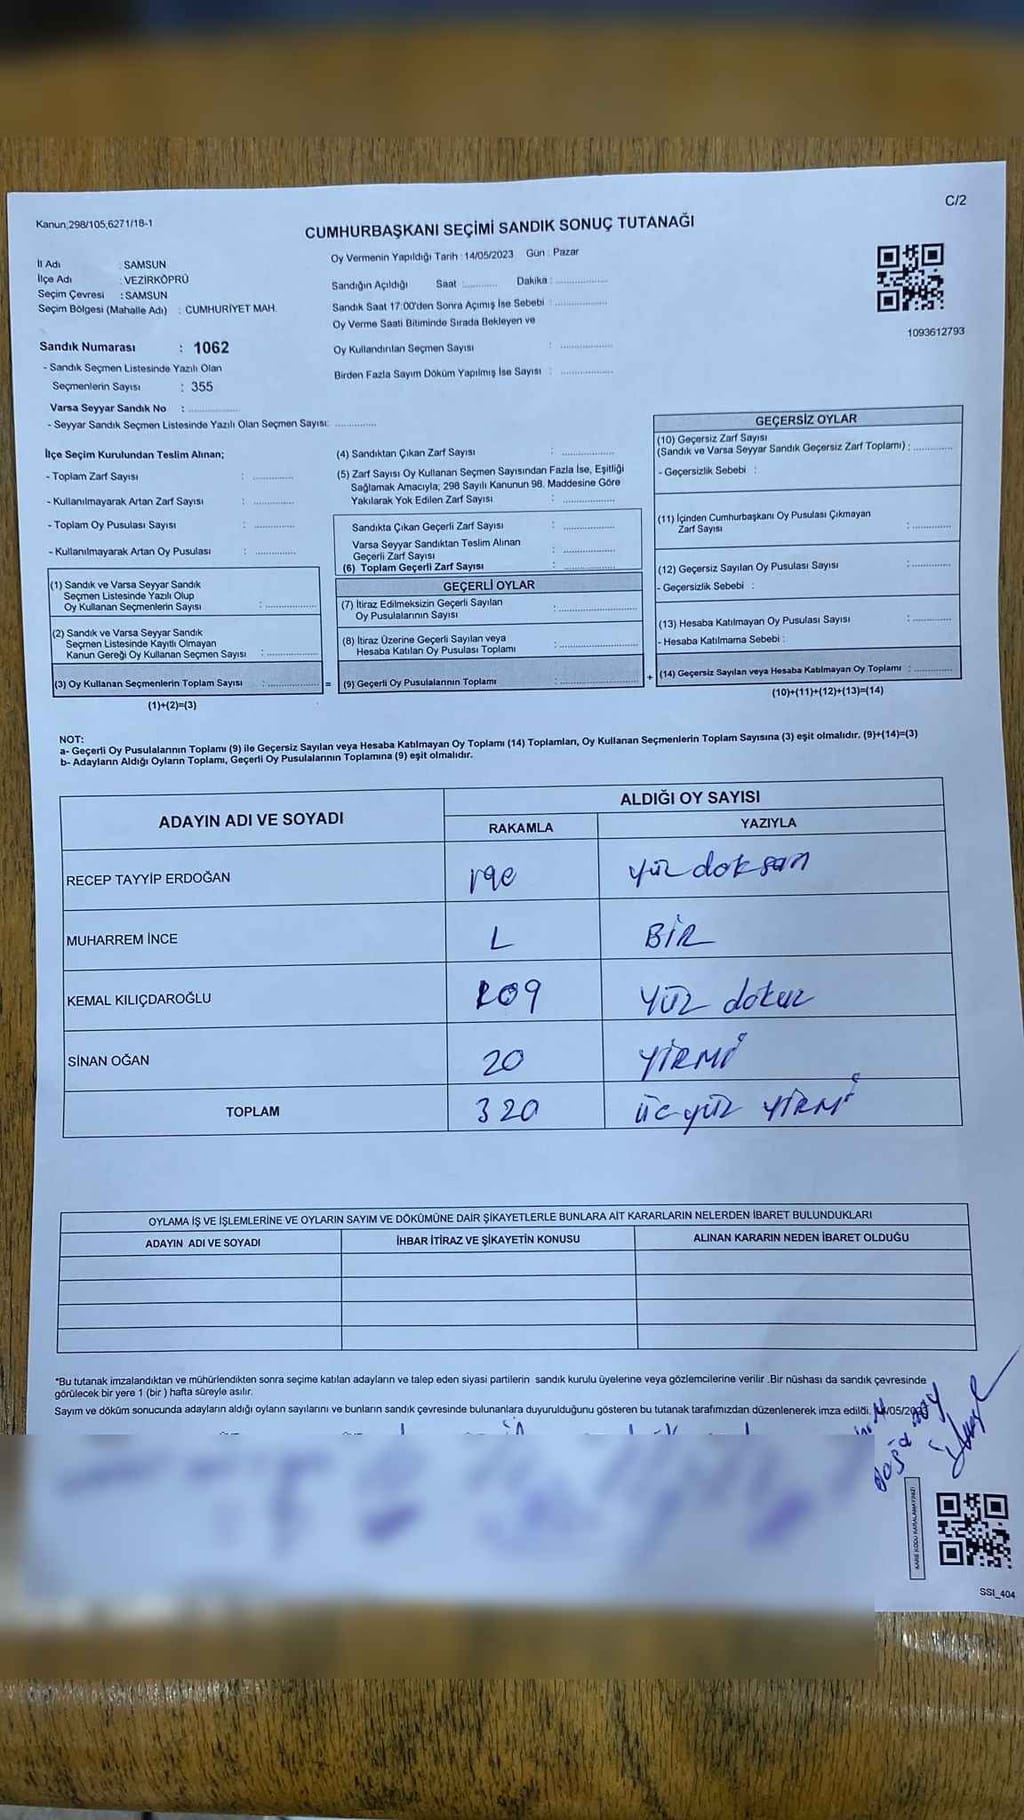 C/2
Kanun;298/105,6271/18-1
CUMHURBAŞKANI SEÇİMİ SANDIK SONUÇ TUTANAĞI
İl Adı : SAMSUN
İlçe Adı : VEZİRKÖPRÜ
Seçim Çevresi : SAMSUN
Seçim Bölgesi (Mahalle Adı) : CUMHURİYET MAH.
Sandık Numarası : 1062
- Sandık Seçmen Listesinde Yazılı Olan
Seçmenlerin Sayısı : 355
Varsa Seyyar Sandık No : ................
- Seyyar Sandık Seçmen Listesinde Yazılı Olan Seçmen Sayısı: .............
Oy Vermenin Yapıldığı Tarih : 14/05/2023 Gün : Pazar
Sandığın Açıldığı Saat ............ Dakika : ................
Sandık Saat 17:00'den Sonra Açımış İse Sebebi : ................
Oy Verme Saati Bitiminde Sırada Bekleyen ve
Oy Kullandırılan Seçmen Sayısı : ................
Birden Fazla Sayım Döküm Yapılmış İse Sayısı : ................
1093612793
İlçe Seçim Kurulundan Teslim Alınan;
- Toplam Zarf Sayısı : .............
- Kullanılmayarak Artan Zarf Sayısı : .............
- Toplam Oy Pusulası Sayısı : .............
- Kullanılmayarak Artan Oy Pusulası : .............
(1) Sandık ve Varsa Seyyar Sandık
Seçmen Listesinde Yazılı Olup
Oy Kullanan Seçmenlerin Sayısı : ................
(2) Sandık ve Varsa Seyyar Sandık
Seçmen Listesinde Kayıtlı Olmayan
Kanun Gereği Oy Kullanan Seçmen Sayısı : ................
(3) Oy Kullanan Seçmenlerin Toplam Sayısı : ................ =
(1)+(2)=(3)
(4) Sandıktan Çıkan Zarf Sayısı : ................
(5) Zarf Sayısı Oy Kullanan Seçmen Sayısından Fazla İse, Eşitliği
Sağlamak Amacıyla; 298 Sayılı Kanunun 98. Maddesine Göre
Yakılarak Yok Edilen Zarf Sayısı : ................
Sandıkta Çıkan Geçerli Zarf Sayısı : ................
Varsa Seyyar Sandıktan Teslim Alınan
Geçerli Zarf Sayısı : ................
(6) Toplam Geçerli Zarf Sayısı : ................
GEÇERLİ OYLAR
(7) İtiraz Edilmeksizin Geçerli Sayılan
Oy Pusulalarının Sayısı : ................
(8) İtiraz Üzerine Geçerli Sayılan veya
Hesaba Katılan Oy Pusulası Toplamı : ................
(9) Geçerli Oy Pusulalarının Toplamı : ................ +
GEÇERSİZ OYLAR
(10) Geçersiz Zarf Sayısı
(Sandık ve Varsa Seyyar Sandık Geçersiz Zarf Toplamı) : .............
- Geçersizlik Sebebi :
(11) İçinden Cumhurbaşkanı Oy Pusulası Çıkmayan
Zarf Sayısı : .............
(12) Geçersiz Sayılan Oy Pusulası Sayısı : .............
- Geçersizlik Sebebi :
(13) Hesaba Katılmayan Oy Pusulası Sayısı : .............
- Hesaba Katılmama Sebebi :
(14) Geçersiz Sayılan veya Hesaba Katılmayan Oy Toplamı : .............
(10)+(11)+(12)+(13)=(14)
NOT:
a- Geçerli Oy Pusulalarının Toplamı (9) ile Geçersiz Sayılan veya Hesaba Katılmayan Oy Toplamı (14) Toplamları, Oy Kullanan Seçmenlerin Toplam Sayısına (3) eşit olmalıdır. (9)+(14)=(3)
b- Adayların Aldığı Oyların Toplamı, Geçerli Oy Pusulalarının Toplamına (9) eşit olmalıdır.
ADAYIN ADI VE SOYADI ALDIĞI OY SAYISI
RAKAMLA YAZIYLA
RECEP TAYYİP ERDOĞAN 190 yüz doksan
MUHARREM İNCE 1 BİR
KEMAL KILIÇDAROĞLU 109 YÜZ dokuz
SİNAN OĞAN 20 YİRMİ
TOPLAM 320 üc yüz YİRMİ
OYLAMA İŞ VE İŞLEMLERİNE VE OYLARIN SAYIM VE DÖKÜMÜNE DAİR ŞİKAYETLERLE BUNLARA AİT KARARLARIN NELERDEN İBARET BULUNDUKLARI
ADAYIN ADI VE SOYADI İHBAR İTİRAZ VE ŞİKAYETİN KONUSU ALINAN KARARIN NEDEN İBARET OLDUĞU
*Bu tutanak imzalandıktan ve mühürlendikten sonra seçime katılan adayların ve talep eden siyasi partilerin sandık kurulu üyelerine veya gözlemcilerine verilir .Bir nüshası da sandık çevresinde
görülecek bir yere 1 (bir ) hafta süreyle asılır.
Sayım ve döküm sonucunda adayların aldığı oyların sayılarını ve bunların sandık çevresinde bulunanlara duyurulduğunu gösteren bu tutanak tarafımızdan düzenlenerek imza edildi.
KARE KODU KARALAMAYINIZ!
SSI_404